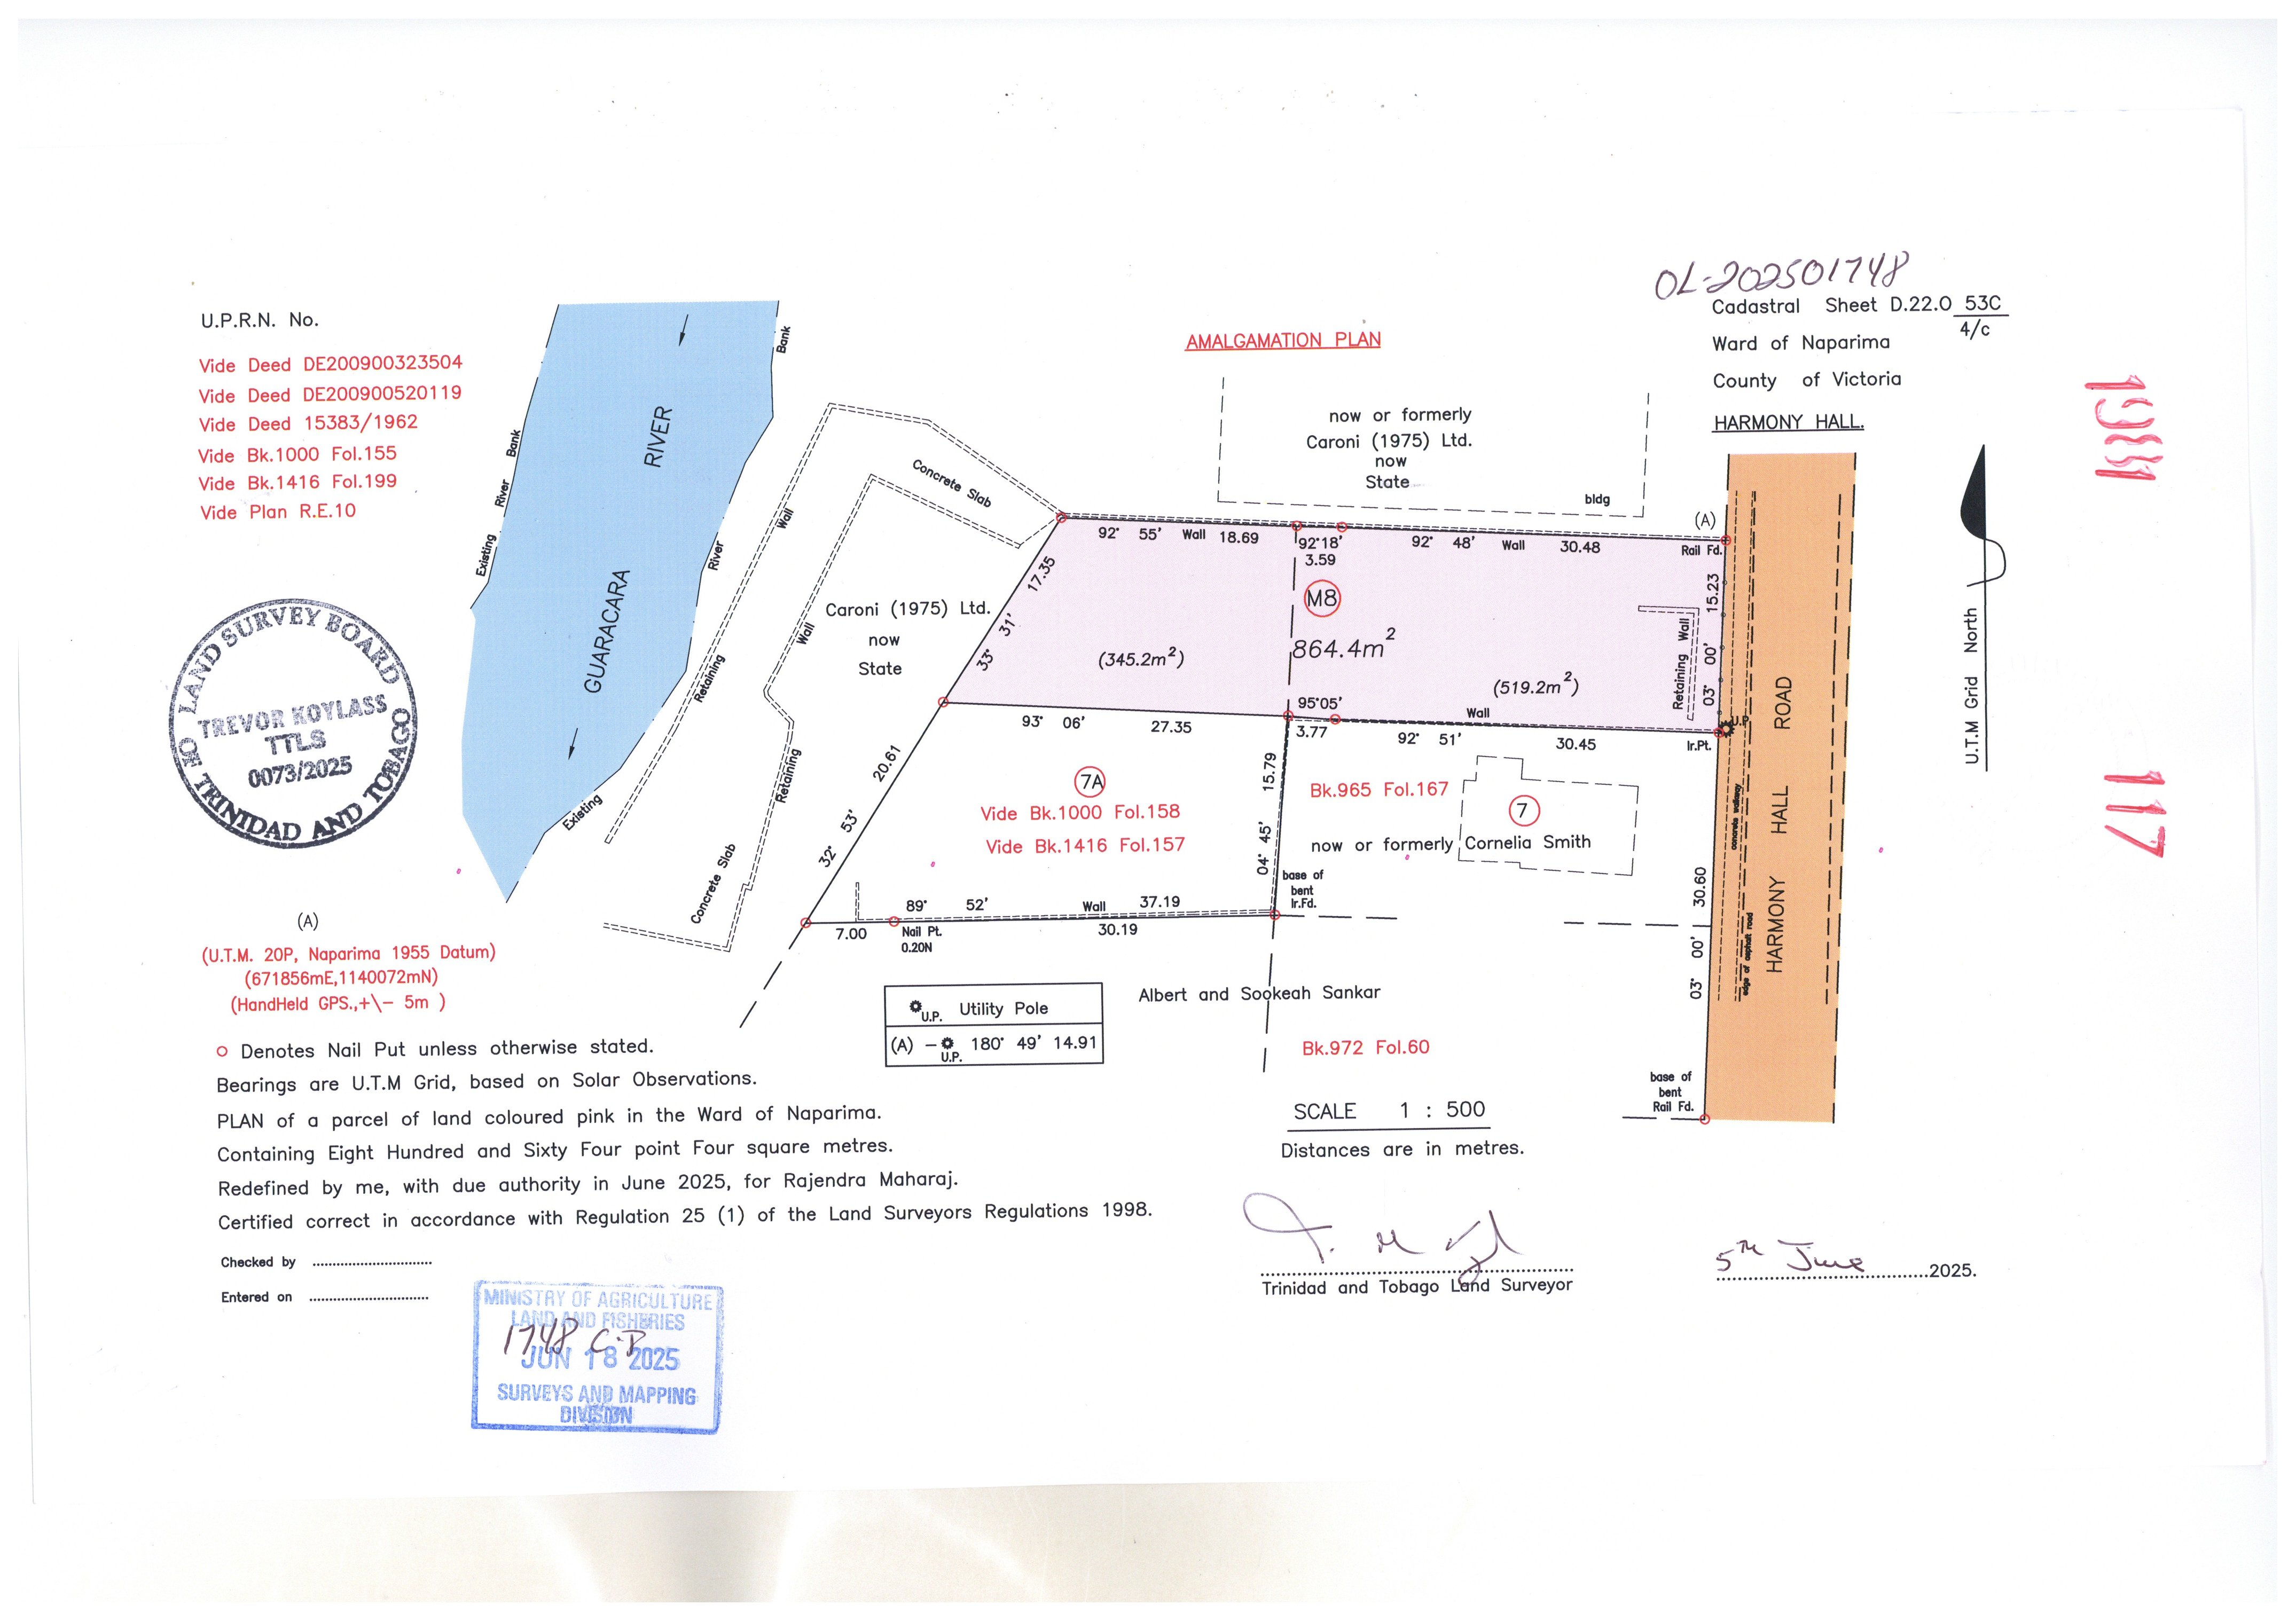 OL-202501748
Cadastral Sheet D.22.O 53C
4/c
Ward of Naparima
County of Victoria
HARMONY HALL.
U.P.R.N. No.
Vide Deed DE200900323504
Vide Deed DE200900520119
Vide Deed 15383/1962
Vide Bk.1000 Fol.155
Vide Bk.1416 Fol.199
Vide Plan R.E.10
AMALGAMATION PLAN
now or formerly
Caroni (1975) Ltd.
now
State
bldg
(A)
Rail Fd.
Existing River Bank
RIVER
GUARACARA
Existing River Bank
Retaining Wall
Retaining Wall
Concrete Slab
Concrete Slab
Caroni (1975) Ltd.
now
State
92° 55' Wall 18.69
92°18'
3.59
92° 48' Wall 30.48
33° 31' 17.35
M8
864.4m²
(345.2m²)
(519.2m²)
Retaining Wall
03° 00' 15.23
U.P
Ir.Pt.
93° 06' 27.35
95°05'
3.77
Wall
92° 51' 30.45
32° 53' 20.61
7A
Vide Bk.1000 Fol.158
Vide Bk.1416 Fol.157
04° 45' 15.79
Bk.965 Fol.167
7
now or formerly Cornelia Smith
base of
bent
Ir.Fd.
89° 52' Wall 37.19
7.00
Nail Pt.
0.20N
30.19
03° 00' 30.60
concrete walkway
edge of asphalt road
HARMONY HALL ROAD
U.T.M Grid North
117
LAND SURVEY BOARD
TREVOR KOYLASS
TTLS
0073/2025
OF TRINIDAD AND TOBAGO
(A)
(U.T.M. 20P, Naparima 1955 Datum)
(671856mE,1140072mN)
(HandHeld GPS.,+\- 5m )
U.P. Utility Pole
(A) – U.P. 180° 49' 14.91
Albert and Sookeah Sankar
Bk.972 Fol.60
base of
bent
Rail Fd.
SCALE 1 : 500
Distances are in metres.
Denotes Nail Put unless otherwise stated.
Bearings are U.T.M Grid, based on Solar Observations.
PLAN of a parcel of land coloured pink in the Ward of Naparima.
Containing Eight Hundred and Sixty Four point Four square metres.
Redefined by me, with due authority in June 2025, for Rajendra Maharaj.
Certified correct in accordance with Regulation 25 (1) of the Land Surveyors Regulations 1998.
Checked by
Entered on
Trinidad and Tobago Land Surveyor
5TH June 2025.
MINISTRY OF AGRICULTURE
LAND AND FISHERIES
1748 C.P
JUN 18 2025
SURVEYS AND MAPPING
DIVISION